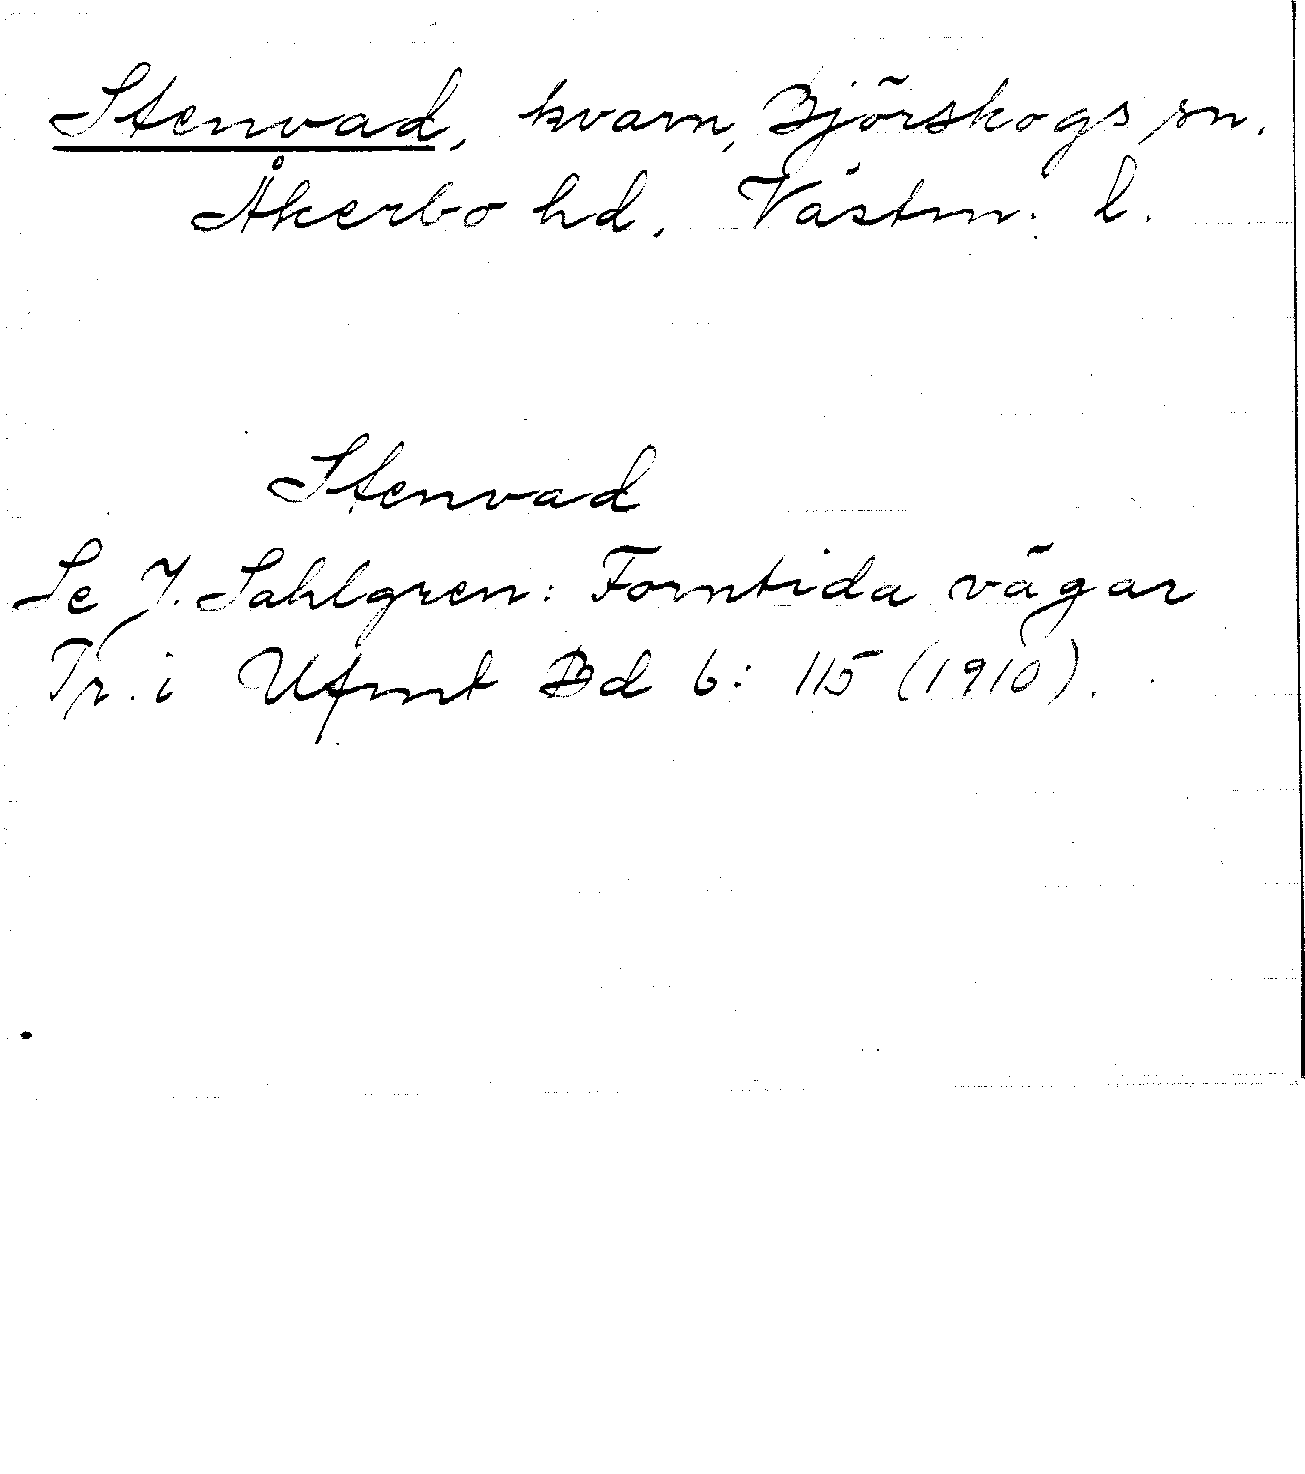 Stenvad, kvarn, Björskogs sn.
Åkerbo hd. Västm. l.
Stenvad
Se J. Sahlgren: Forntida vägar
Tr. i Ufmt Bd 6: 115 (1910).